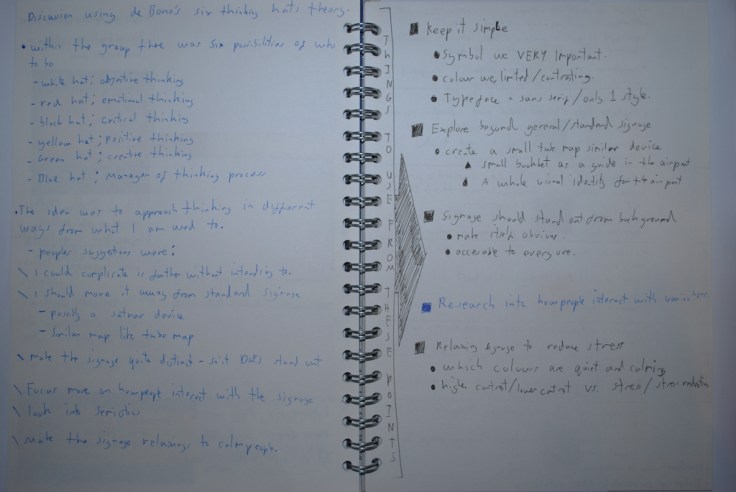 Discussion using de Bono's six thinking hats theory.
• within the group there was six possibilities of who
to be
- white hat; objective thinking
- red hat; emotional thinking
- black hat; critical thinking
- yellow hat; positive thinking
- Green hat; creative thinking
- Blue hat; Manager of thinking process
• The idea was to approach thinking in different
ways from what I am used to.
- peoples suggestions were:
\ I could complicate is further without intending to.
\ I should move it away from standard signage
- possibly a satnav device
- Similar map like tube map
\ make the signage quite distinct - so it stand out
\ Focus more on how people interact with the signage
\ look into semiotics
\ Make the signage relaxing, to calm people.
THINGS TO USE FROM THESE POINTS
Keep it simple
• Symbol use VERY important.
• colour use, limited/contrasting.
• Typeface - sans serif/only 1 style.
Explore beyond general/standard signage
• create a small tube map similar device
small booklet as a guide in the airport
A whole visual identity for the airport
Signage should stand out from background
• make itself obvious.
• accessible to everyone.
Research into how people interact with
Relaxing signage to reduce stress
• which colours are quiet and calming
• higher contrast/lower contrast vs. stress/stress reduction